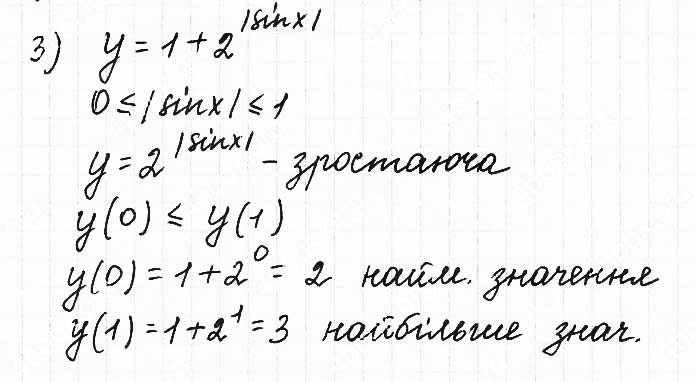 3) y = 1 + 2^|sinx|
0 ≤ |sinx| ≤ 1
y = 2^|sinx| – зростаюча
y(0) ≤ y(1)
y(0) = 1 + 2^0 = 2 найм. значення
y(1) = 1 + 2^1 = 3 найбільше знач.